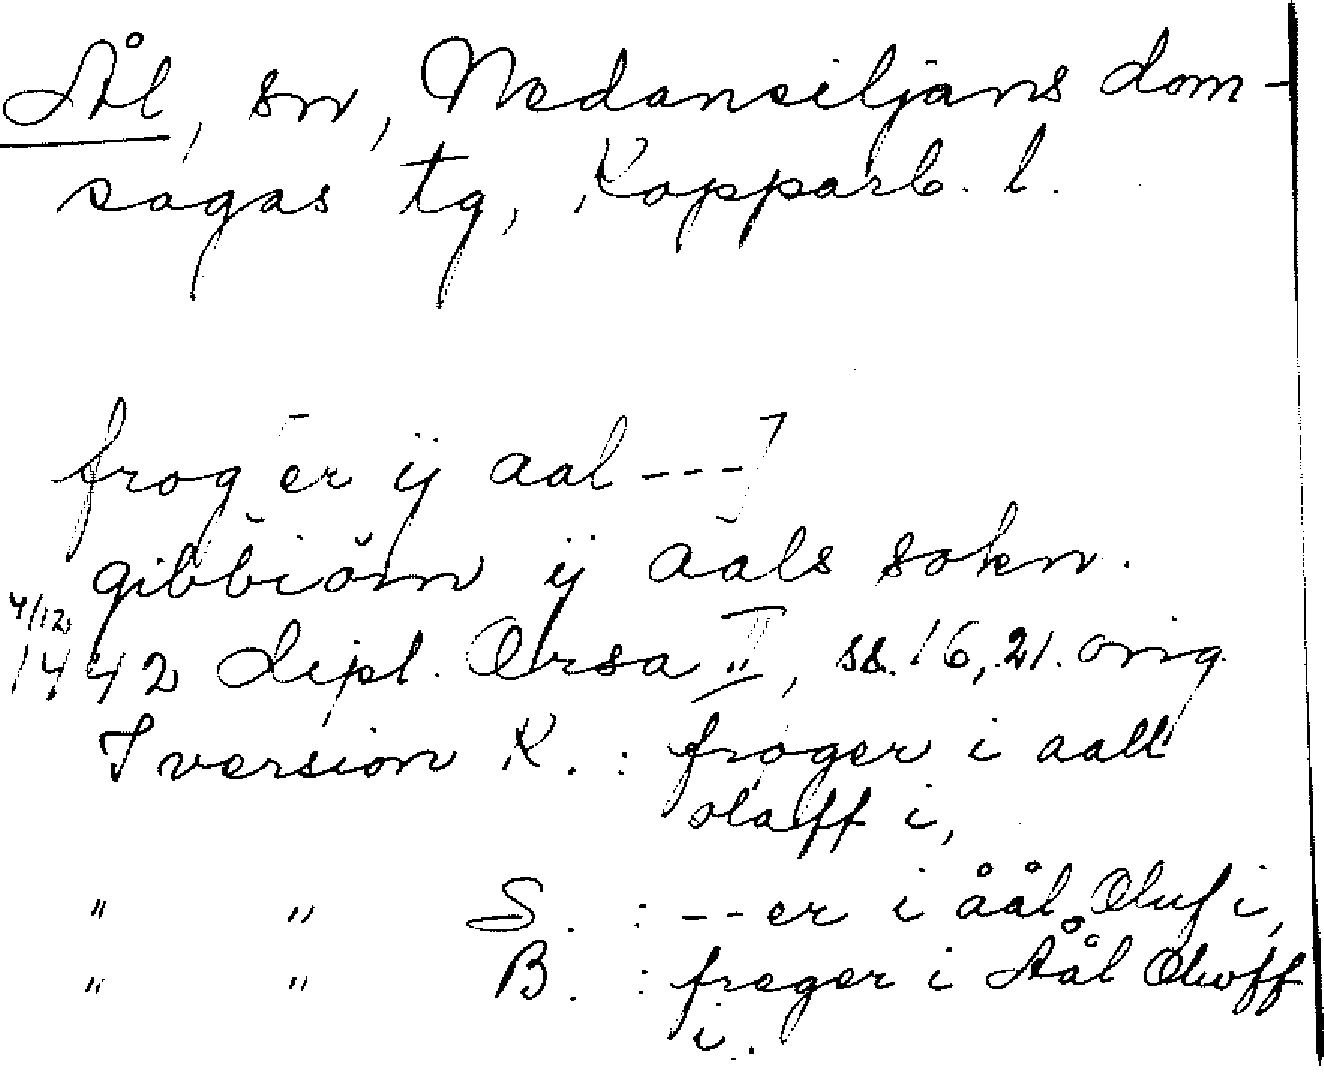 Ål, sn, Nedansiljans dom-
sagas tg, Kopparb. l.
frog[er ij aal ---]
gibbiörn ij aals sokn.
4/12
1442 Dipl. Orsa II, ss. 16, 21. orig
I version K. : froger i aall
olaff i,
" " S. : -- er i åål Oluf i,
" " B. : freger i Åål Olwff
i.